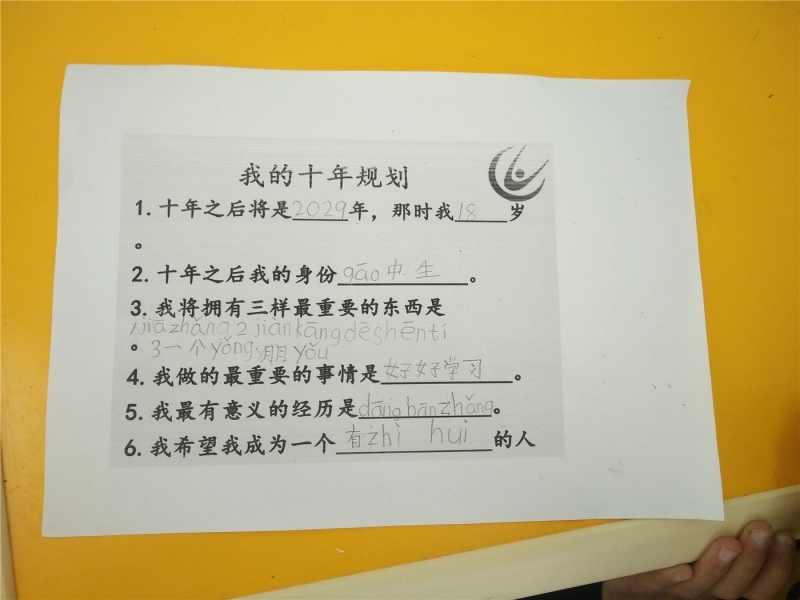 我的十年规划
1. 十年之后将是2029年，那时我18岁
。
2. 十年之后我的身份gāo中生。
3. 我将拥有三样最重要的东西是
1jiāzhǎng2jiànkāngdēshēntǐ
。3一个yǒng朋yǒu
4. 我做的最重要的事情是好好学习。
5. 我最有意义的经历是dāngbānzhǎng。
6. 我希望我成为一个有zhì huì的人